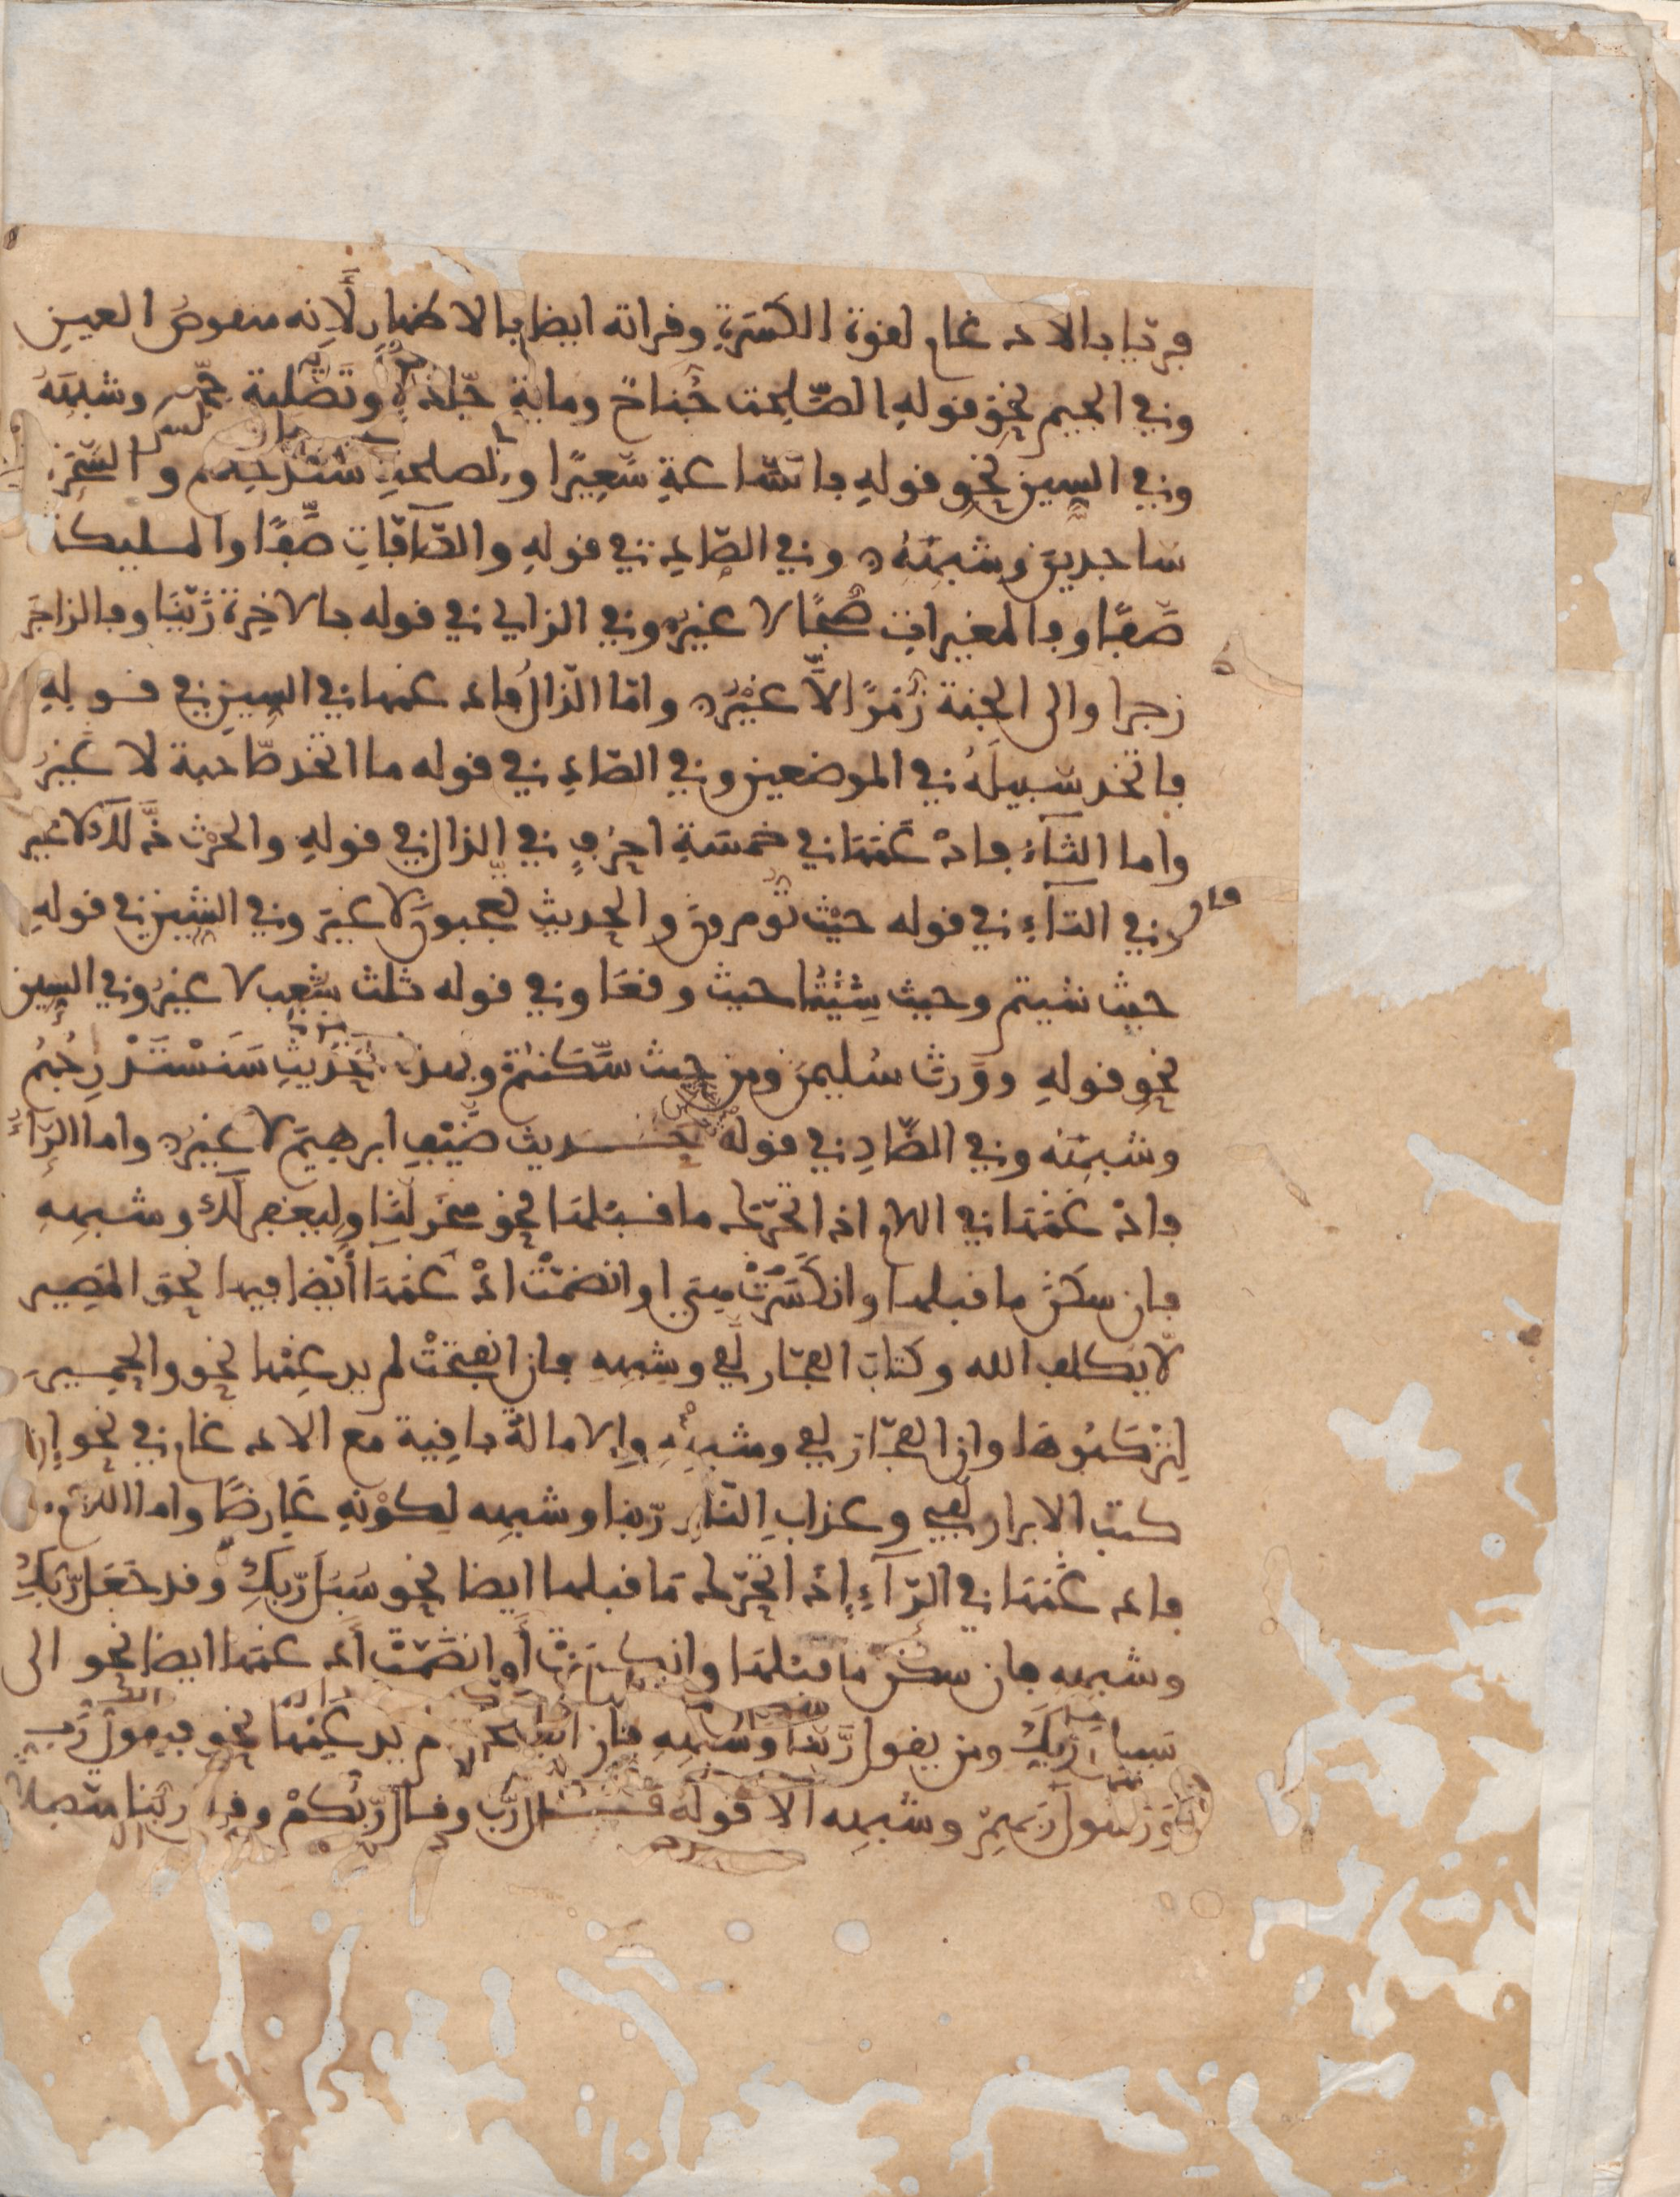 فريا بالادغام لقوة الكسرة وقراته ايضا بالاظهار لأنه منقوص العين
وفي الجيم نحو قوله الصلحت جناح وماية جلدة وتصلية جحيم وشبهه
وفي السين نحو قوله بالساعة سعيرا والصلحت سندخلهم والسحرة
ساجدين وشبهه وفي الصاد في قوله والصافات صفا والمليكة
صفا وفالمغيرات صبحا لا غير وفي الزاي في قوله بالاخرة زينا وفالزاجرات
زجرا والى الجنة زمرا لا غير واما الذال فادغمها في السين في قوله
فاتخذ سبيله في الموضعين وفي الصاد في قوله ما اتخذ صاحبة لا غير
واما الثاء فادغمها في خمسة احرف في الذال في قوله والحرث ذلك لا غير
وفي التاء في قوله حيث تومرون والحديث تعجبون لا غير وفي الشين في قوله
حيث شيتم وحيث شئتما حيث وقعا وفي قوله ثلث شعب لا غير وفي السين
نحو قوله وورث سليمن ومن حيث سكنتم وبهذا الحديث سنستدرجهم
وشبهه وفي الضاد في قوله حديث ضيف ابرهيم لا غير واما الراء
فادغمها في اللام اذا تحرك ما قبلها نحو سخر لنا وليغفر لك وشبهه
فان سكن ما قبلها وانكسرت هي او انضمت ادغمها أيضا فيها نحو المصير
لا يكلف الله وكتاب الفجار لفي وشبهه فان انفتحت لم يدغمها نحو والحمير
لتركبوها وان الفجار لفي وشبهه والامالة باقية مع الادغام في نحو إن
كتب الابرار لفي وعذاب النار ربنا وشبهه لكونه عارضا واما اللام
فادغمها في الراء إذا تحرك ما قبلها ايضا نحو سبل ربك وقد جعل ربك
وشبهه فان سكن ما قبلها وانكسرت أو انضمت أدغمها ايضا نحو الى
سبيل ربك ومن يقول ربنا وشبهه فان انفتحت لم يدغمها نحو فيقول رب
ورسول ربهم وشبهه الا قوله قال رب وقال ربكم وقال ربنا متصلا